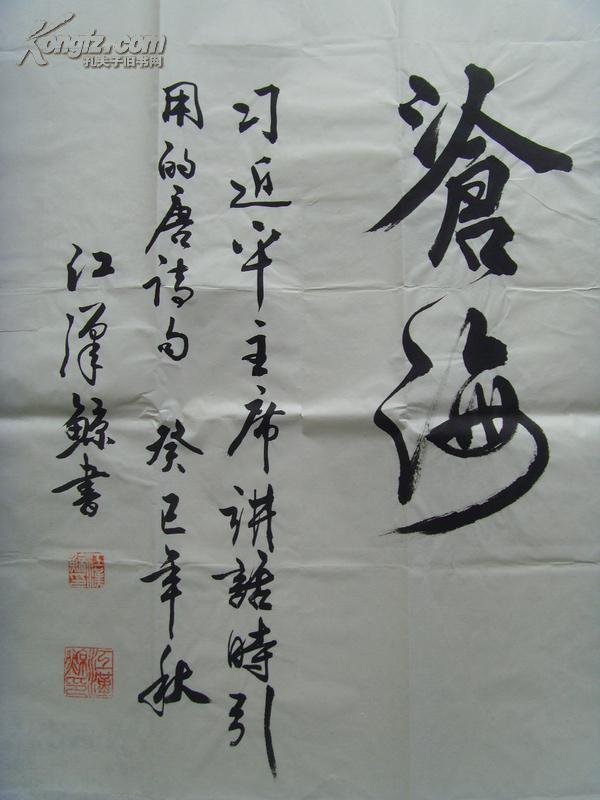 滄海
习近平主席讲話時引
用的唐诗句 癸巳年秋
江漢鯨書
Kongfz.com
孔夫子旧书网